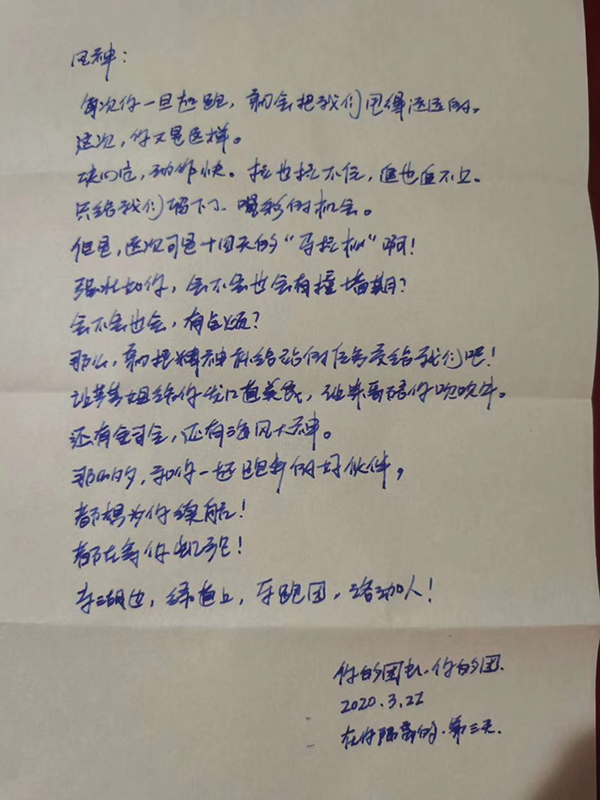 风神：
每次你一旦起跑，就会把我们甩得远远的。
这次，你又是这样。
决心定，动作快。拉也拉不住，追也追不上。
只给我们留下了喝彩的机会。
但是，这次可是十四天的“马拉松”啊！
强壮如你，会不会也会有撞墙期？
会不会也会，有点烦？
那么，就把精神补给站的任务交给我们吧！
让 姐给你 口 美食，让 陪你吹吹牛。
还有 司令，还有海风大神。
那么多，和你一起跑步的好伙伴，
都想为你续航！
都在等你凯旋！
东湖边，绿道上，导跑团，诺加人！
你的团长、你的团.
2020.3.22
在你隔离的第三天.